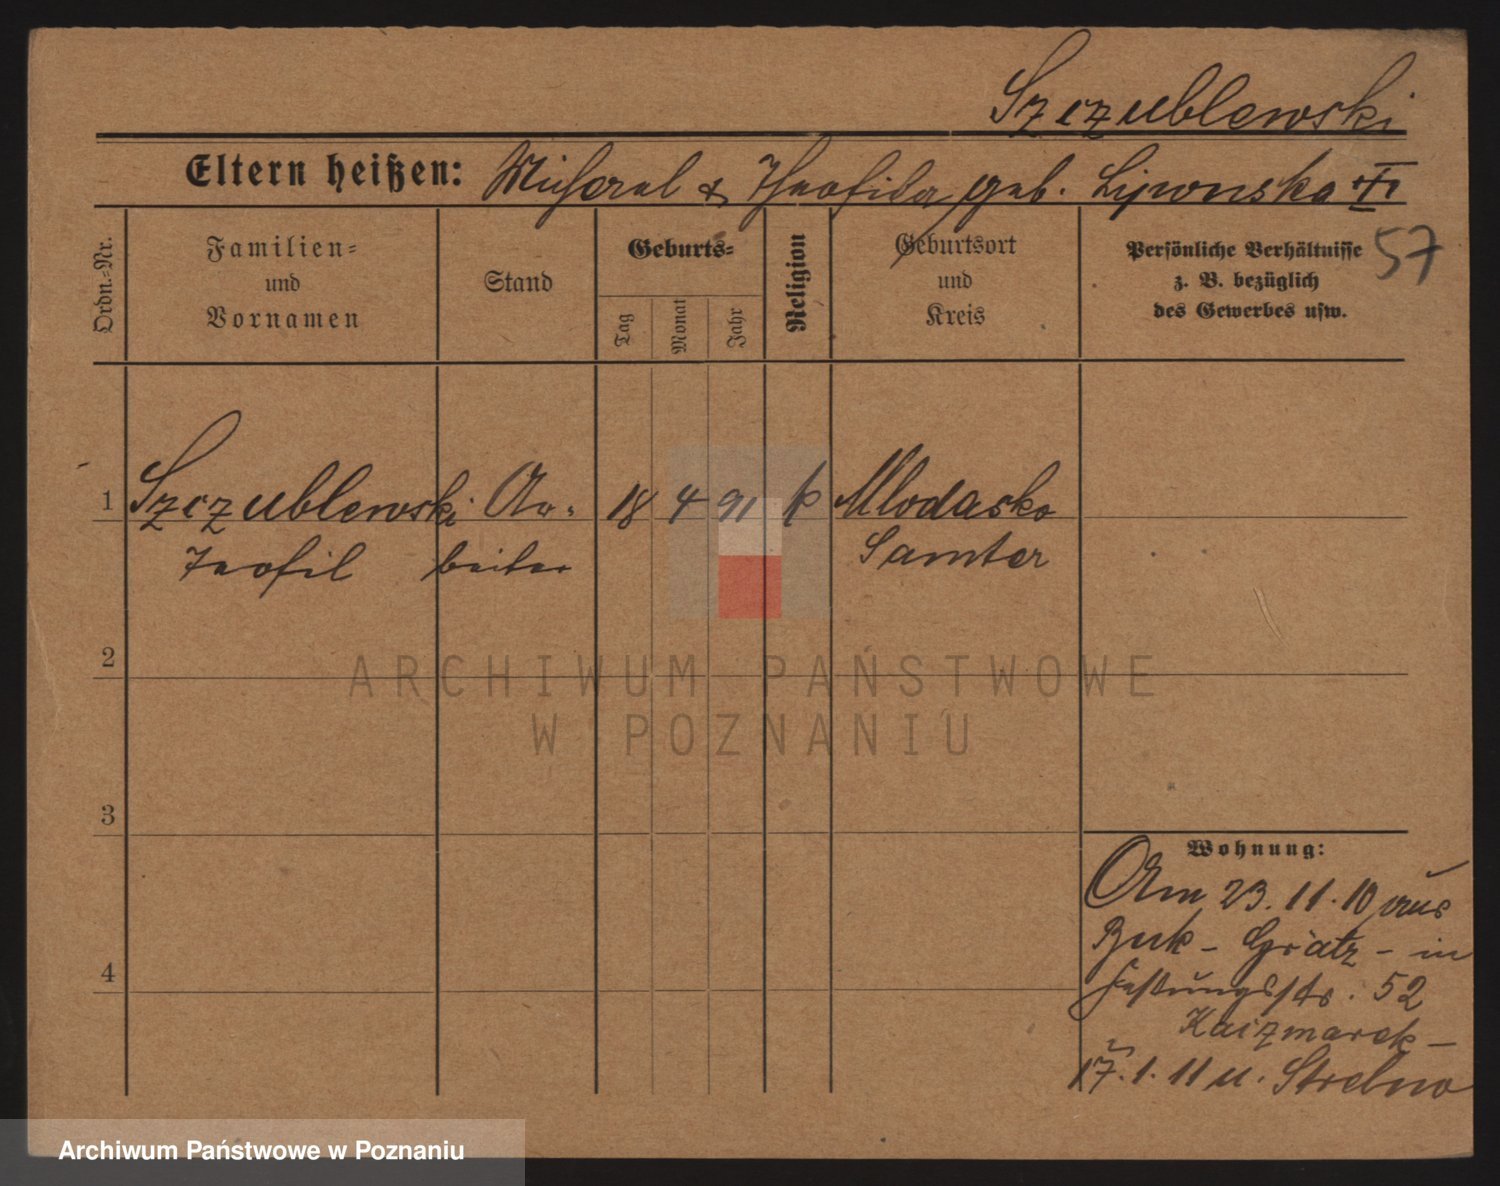 Szczublewski
Eltern heißen: Michael & Theofila geb. Liponska
57
Ordn.-Nr.
Familien-
und
Vornamen
Stand
Geburts-
Tag
Monat
Jahr
Religion
Geburtsort
und
Kreis
Persönliche Verhältnisse
z. B. bezüglich
des Gewerbes usw.
1 Szczublewski Ar- 18 4 91 k Mlodasko
Teofil beiter Samter
2
ARCHIWUM PAŃSTWOWE
W POZNANIU
3
Wohnung:
Am 23.11.10 aus
Buk - Grätz - in
Festungsstr. 52
4
Kaizmarek -
17.1.11 u. Strelno
Archiwum Państwowe w Poznaniu